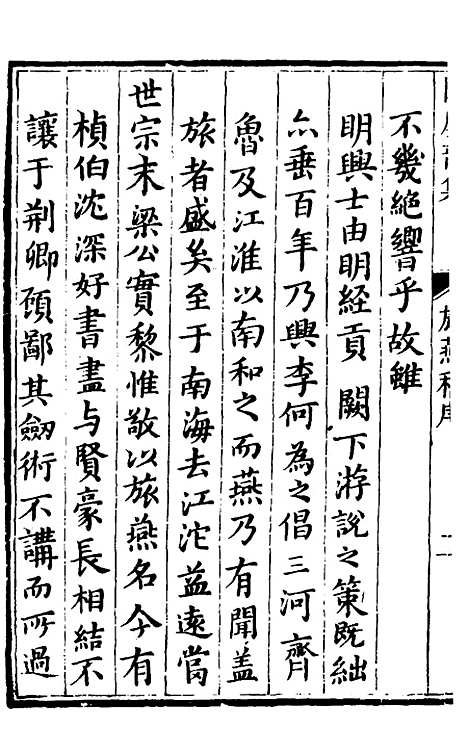 不幾絕響乎故雖
明興士由明經貢 闕下游說之策既絀
亦垂百年乃興李何為之倡三河齊
魯及江淮以南和之而燕乃有聞蓋
旅者盛矣至于南海去江沱益遠當
世宗末梁公實黎惟敬以旅燕名今有
楨伯沈深好書盡与賢豪長相結不
讓于荊卿頋鄙其劒術不講而所過